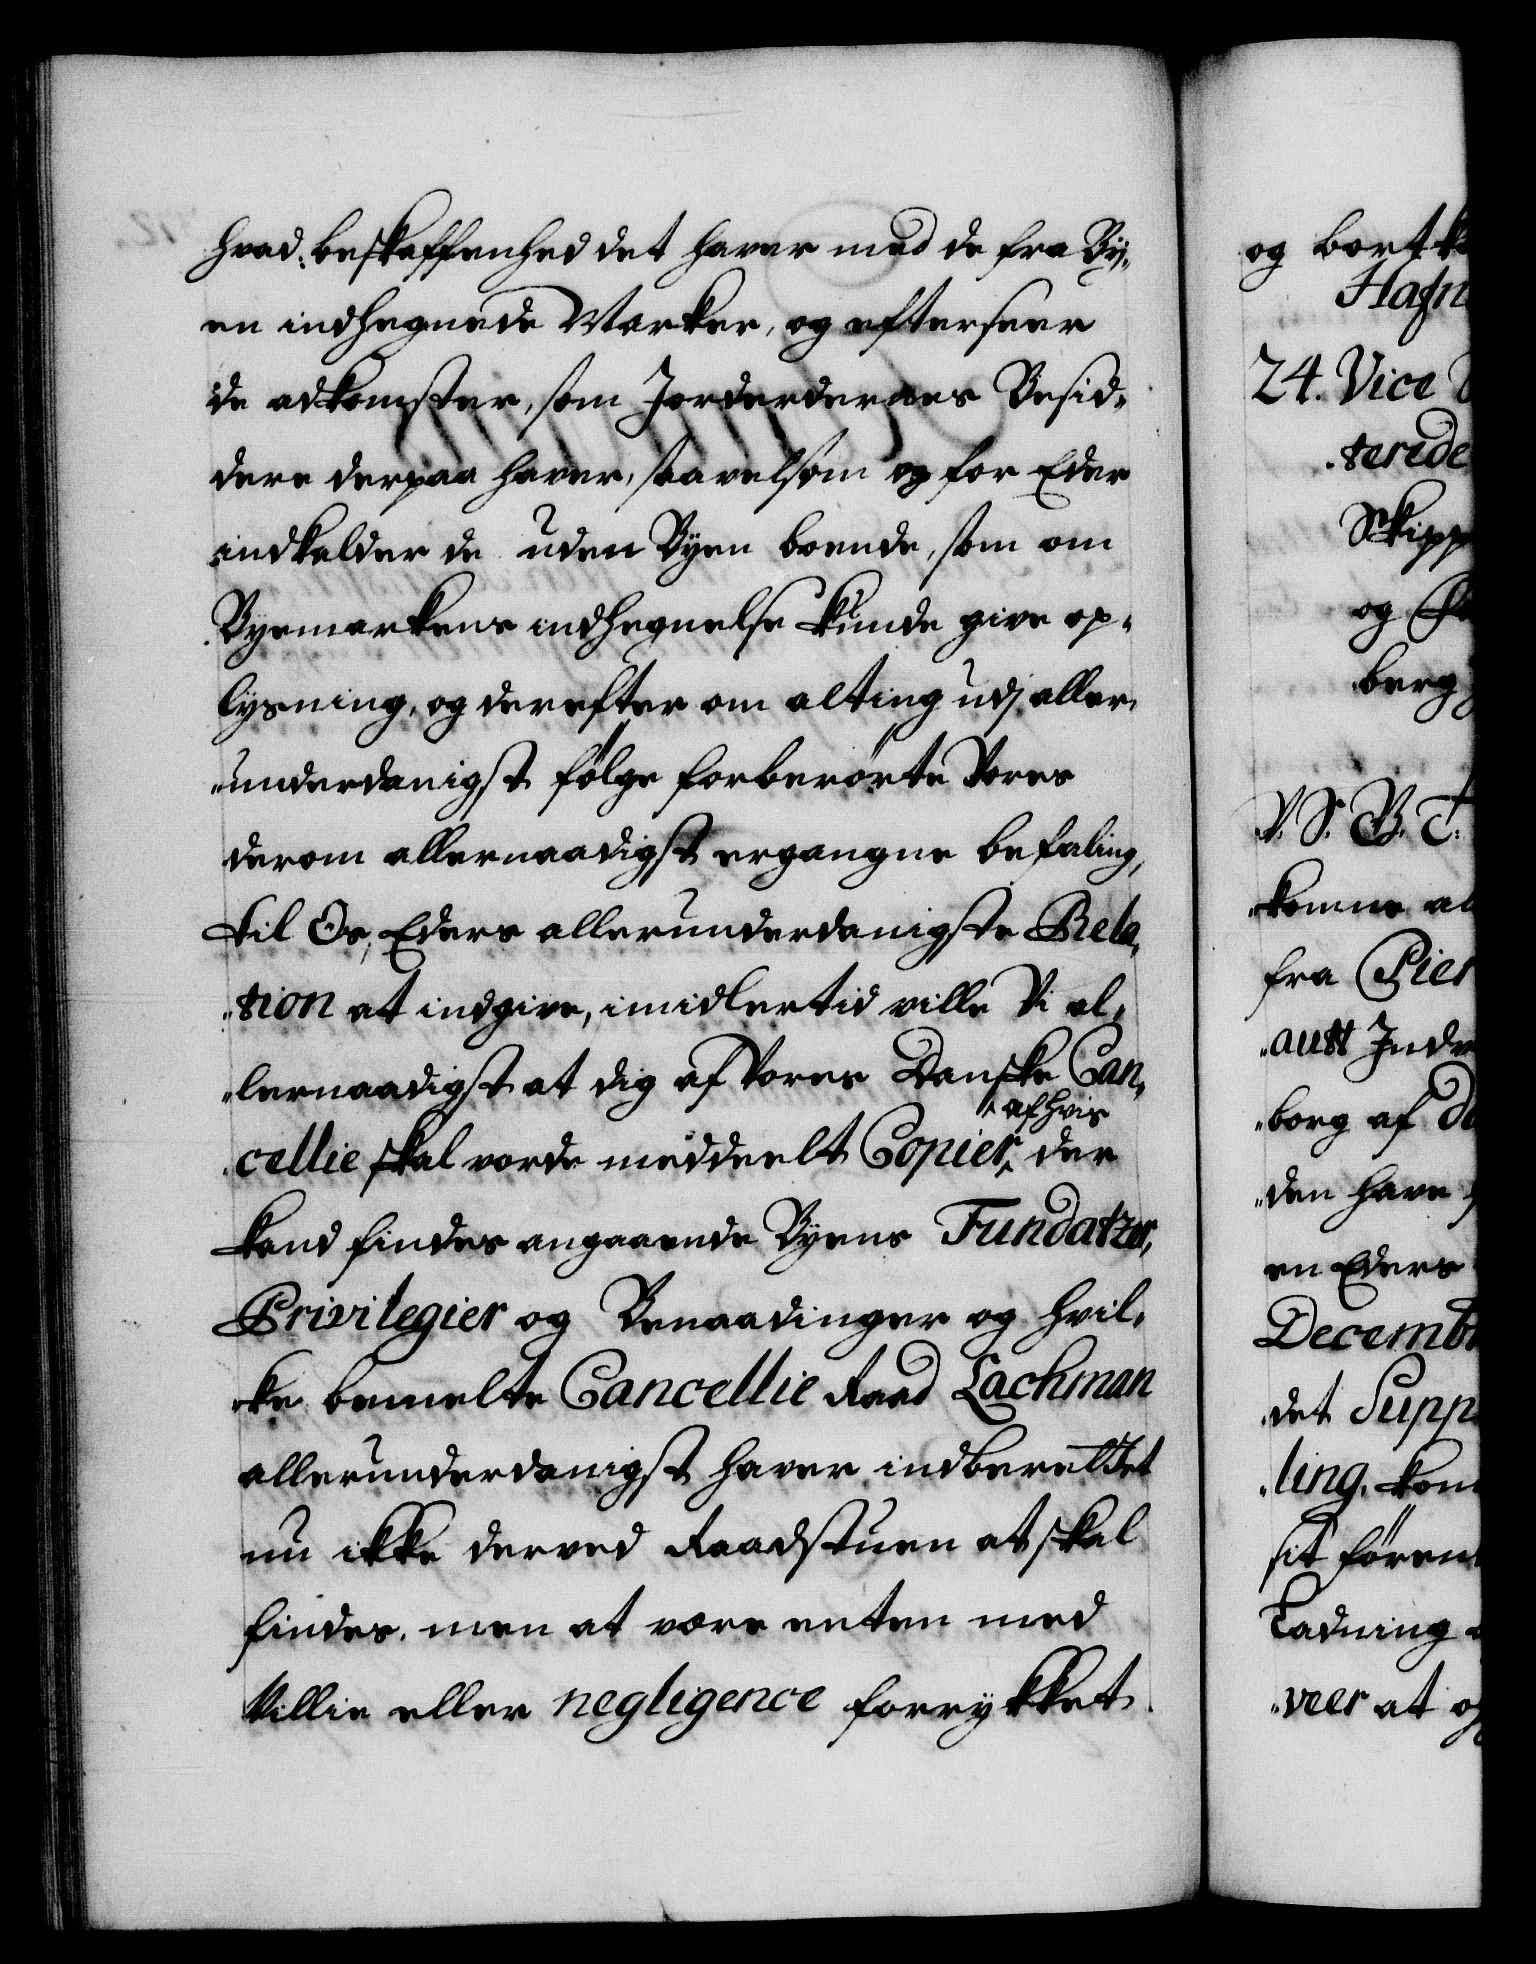 hvad beskaffenhed det haver med de fra By„
en indhegnede Marker, og efterseer
de adkomster, som Jorderdernes Besid„
dere derpaa haver, saavelsom og for Eder
indkalder de uden Byen boende, som om
Byemarkens indhegnelse kunde give op„
lysning, og derefter om alting udj aller„
„underdanigst følge forberørte Vores
derom allernaadigst ergangne befaling,
til Os, Eders allerunderdanigste Rela„
„tion at indgive, imidlertid ville Vi al„
„lernaadigst at dig af Vores Danske Can„
af hvis
„cellie skal vorde meddeelt Copier, der
kand findes angaaende Byens Fundatzer,
Privilegier og Benaadinger og hvil„
„ke bemelte Cancellie Raad Lachman
allerunderdanigst haver indberettet
nu ikke derved Raadstuen at skal
findes, men at være enten med
Villie eller negligence forrykket.
og bortk
Hafn
24. Vice
„teride
Skipp
og
berg
V. S. B. T.
„komne al
fra Pier
„autt Indv
„borg af
„den have
en Eders
Decembr
„det Supp
„ling, kom
sit føren
Ladning
„veer at